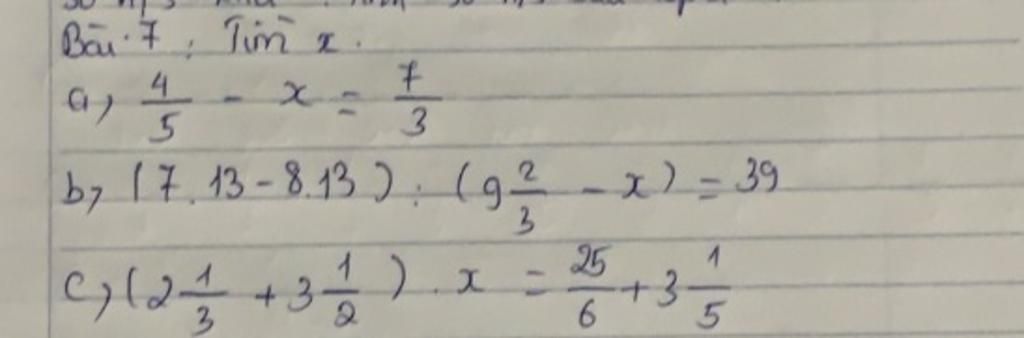 Bài 7 : Tìm x.
a, 4/5 - x = 7/3
b, (7.13-8.13) : (9 2/3 - x) = 39
c, (2 1/3 + 3 1/2) . x = 25/6 + 3 1/5